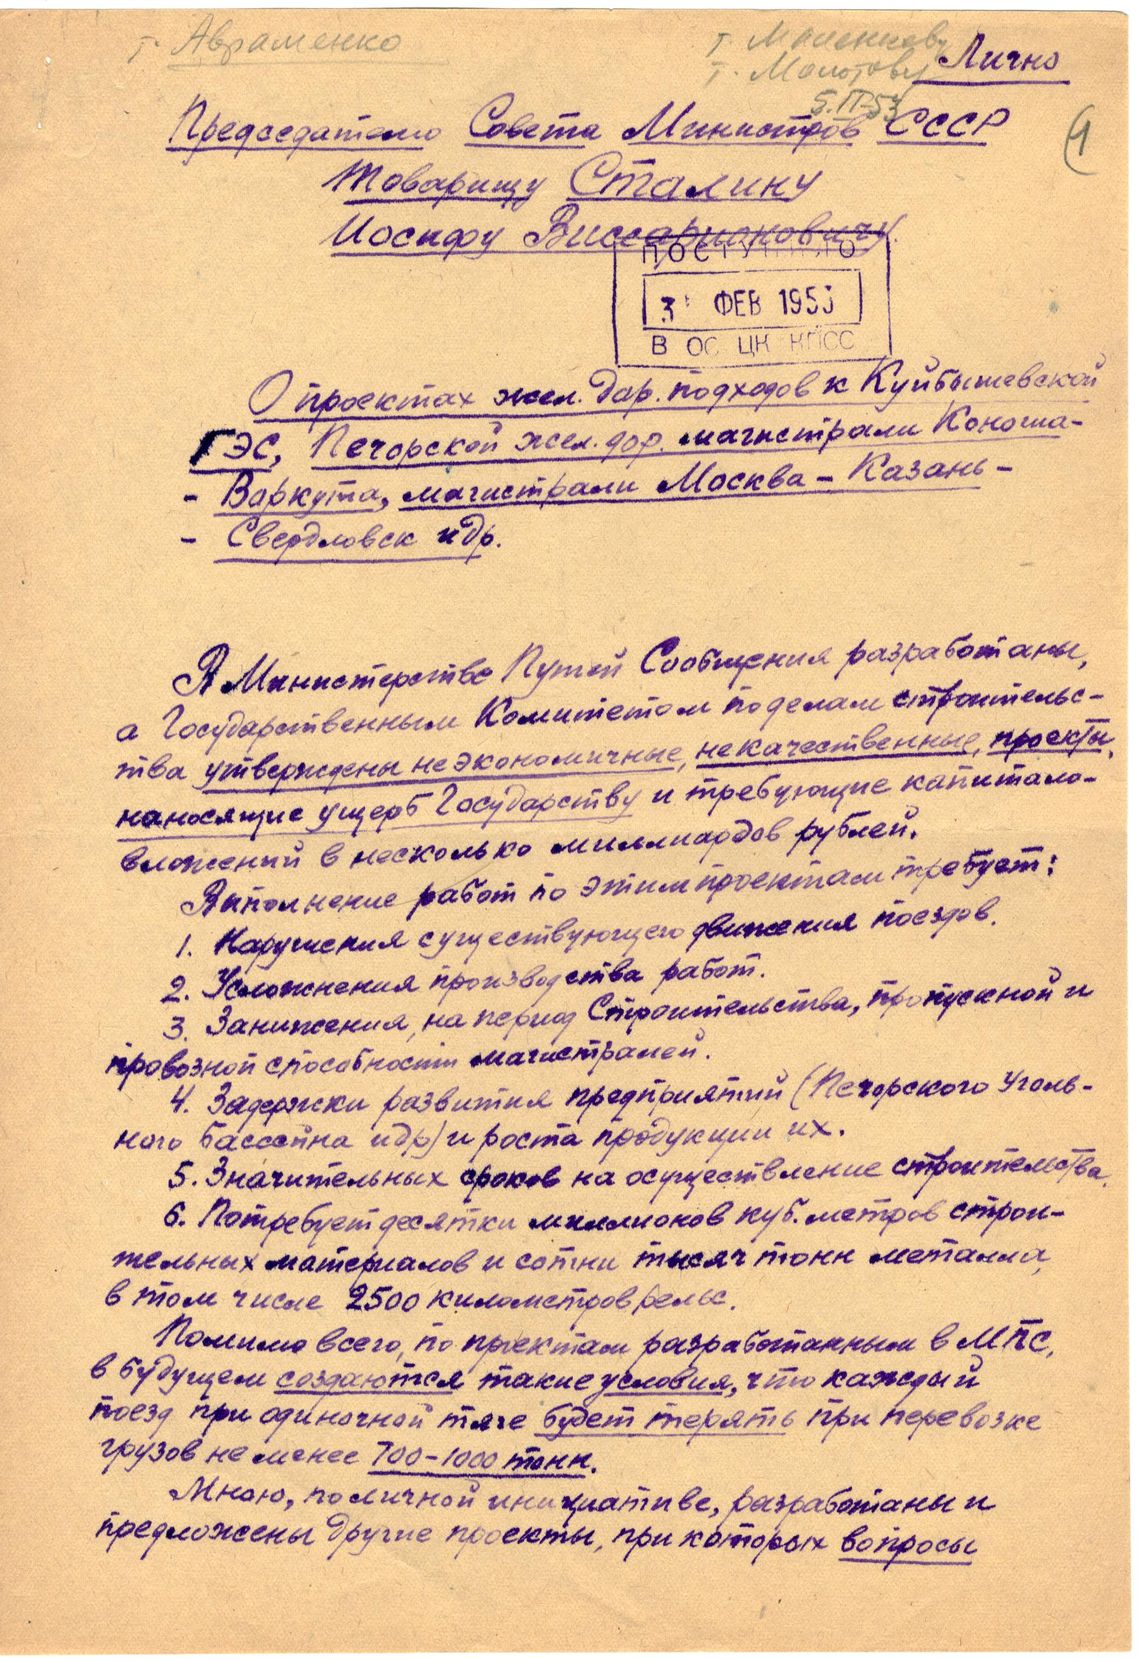 т. Авраменко
т. Маленкову
т. Молотову
Лично
5.II-53
1
Председателю Совета Министров СССР
Товарищу Сталину
Иосифу Виссарионовичу.
ПОСТУПИЛО
3 ФЕВ 1953
В ОС ЦК КПСС
О проектах жел. дор. подходов к Куйбышевской
ГЭС, Печорской жел. дор. магистрали Коноша-
- Воркута, магистрали Москва - Казань -
- Свердловск и др.
В Министерстве Путей Сообщения разработаны,
а Государственным Комитетом по делам строительс-
тва утверждены не экономичные, не качественные, проекты,
наносящие ущерб Государству и требующие капитало-
вложений в несколько миллиардов рублей.
Выполнение работ по этим проектам требует:
1. Нарушения существующего движения поездов.
2. Усложнения производства работ.
3. Занижения, на период Строительства, пропускной и
провозной способности магистралей.
4. Задержки развития предприятий (Печорского Уголь-
ного бассейна и др) и роста продукции их.
5. Значительных сроков на осуществление строительства.
6. Потребует десятки миллионов куб. метров строи-
тельных материалов и сотни тысяч тонн металла,
в том числе 2500 километров рельс.
Помимо всего, по проектам разработанным в МПС,
в будущем создаются такие условия, что каждый
поезд при одиночной тяге будет терять при перевозке
грузов не менее 700-1000 тонн.
Мною, по личной инициативе, разработаны и
предложены другие проекты, при которых вопросы